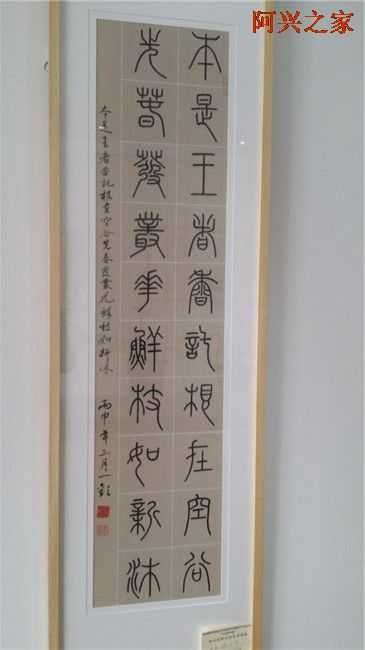 阿兴之家
本是王者香託根在空谷
先春發叢花鮮枝如新沐
本是王者香託根在空谷先春發叢花鮮枝如新沐
丙申年三月一